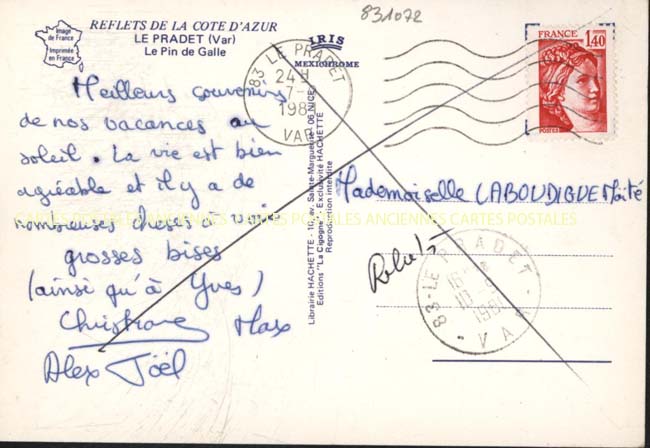 831072
Image
de France
Imprimée
en France
REFLETS DE LA COTE D'AZUR
LE PRADET (Var)
Le Pin de Galle
IRIS
MEXICHROME
83 LE PRADET
24H
7-
198
VAR
FRANCE
1,40
POSTES
Meilleurs souvenirs
de nos vacances au
soleil. La vie est bien
agréable et il y a de
nombreuses choses à voir
grosses bises
(ainsi qu'à Yves)
Christiane Max
Alex Joël
Librairie HACHETTE - 10, av. Sainte-Marguerite - 06 NICE
Editions "La Cigogne" - Exclusivité HACHETTE
Reproduction interdite
Mademoiselle LABOUDIGUE Maïté
CARTES POSTALES ANCIENNES CARTES POSTALES ANCIENNES CARTES POSTALES
83-LE PRADET-
VAR